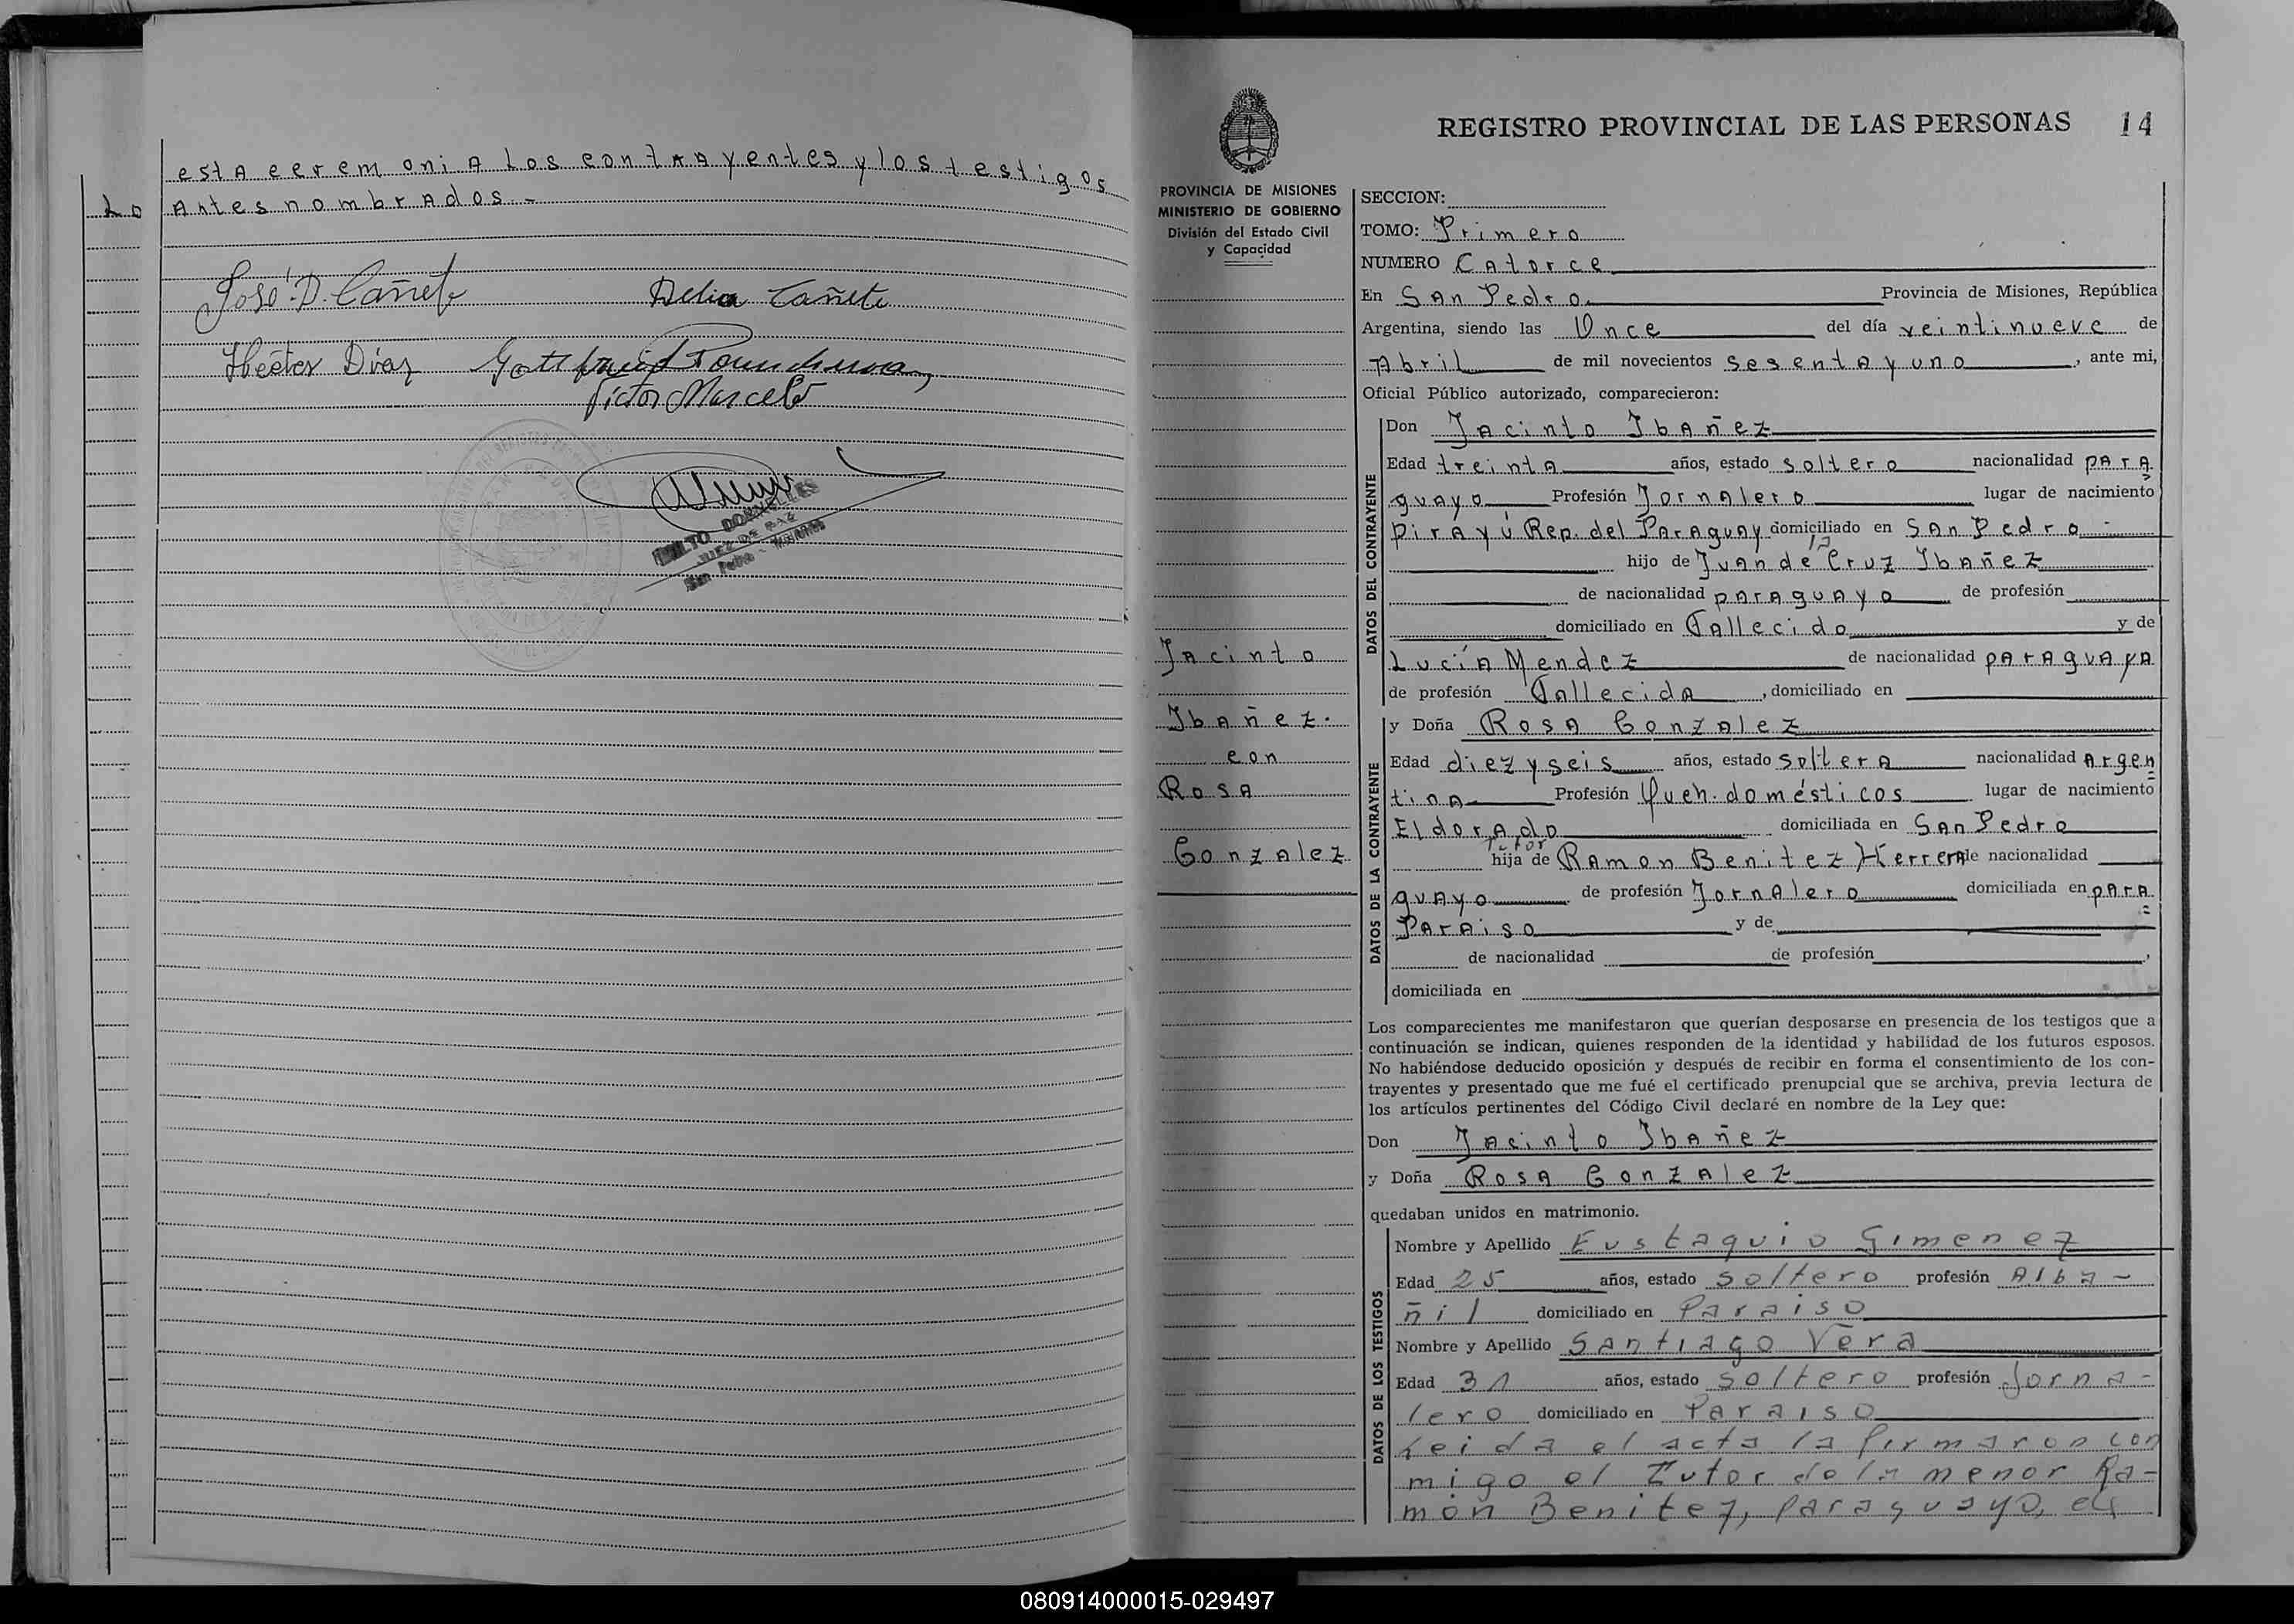 esta ceremonia los contrayentes y los testigos
Lo
antes nombrados.-
José D. Cañete
Delia Cañete
Héctor Díaz
Victor Marcelo
DORNELLES
JUEZ DE PAZ
San Pedro - Misiones
REGISTRO PROVINCIAL DE LAS PERSONAS 14
PROVINCIA DE MISIONES
MINISTERIO DE GOBIERNO
División del Estado Civil
y Capacidad
Jacinto
Ibañez.
con
Rosa
Gonzalez
SECCION:
TOMO: Primero
NUMERO Catorce
En San Pedro Provincia de Misiones, República
Argentina, siendo las Once del día veintinueve de
Abril de mil novecientos sesenta y uno, ante mi,
Oficial Público autorizado, comparecieron:
DATOS DEL CONTRAYENTE
Don Jacinto Ibañez
Edad treinta años, estado soltero nacionalidad para=
guayo Profesión Jornalero lugar de nacimiento
Pirayú Rep. del Paraguay domiciliado en San Pedro
la
hijo de Juan de Cruz Ibañez
de nacionalidad paraguayo de profesión
domiciliado en Fallecido y de
Lucía Mendez de nacionalidad paraguaya
de profesión Fallecida, domiciliado en
DATOS DE LA CONTRAYENTE
y Doña Rosa Gonzalez
Edad diez y seis años, estado soltera nacionalidad Argen=
tina Profesión Queh. domésticos lugar de nacimiento
Eldorado domiciliada en San Pedro
Tutor
hija de Ramon Benitez Herrera de nacionalidad
guayo de profesión Jornalero domiciliada en para=
Paraiso y de
de nacionalidad de profesión,
domiciliada en
Los comparecientes me manifestaron que querían desposarse en presencia de los testigos que a
continuación se indican, quienes responden de la identidad y habilidad de los futuros esposos.
No habiéndose deducido oposición y después de recibir en forma el consentimiento de los con-
trayentes y presentado que me fué el certificado prenupcial que se archiva, previa lectura de
los artículos pertinentes del Código Civil declaré en nombre de la Ley que:
Don Jacinto Ibañez
y Doña Rosa Gonzalez
quedaban unidos en matrimonio.
DATOS DE LOS TESTIGOS
Nombre y Apellido Eustaquio Gimenez
Edad 25 años, estado soltero profesión Alba-
ñil domiciliado en Paraiso
Nombre y Apellido Santiago Vera
Edad 31 años, estado soltero profesión Jorna-
lero domiciliado en Paraiso
Leida el acta la firmaron con
migo el Tutor de la menor Ra-
món Benitez, paraguayo, el
080914000015-029497